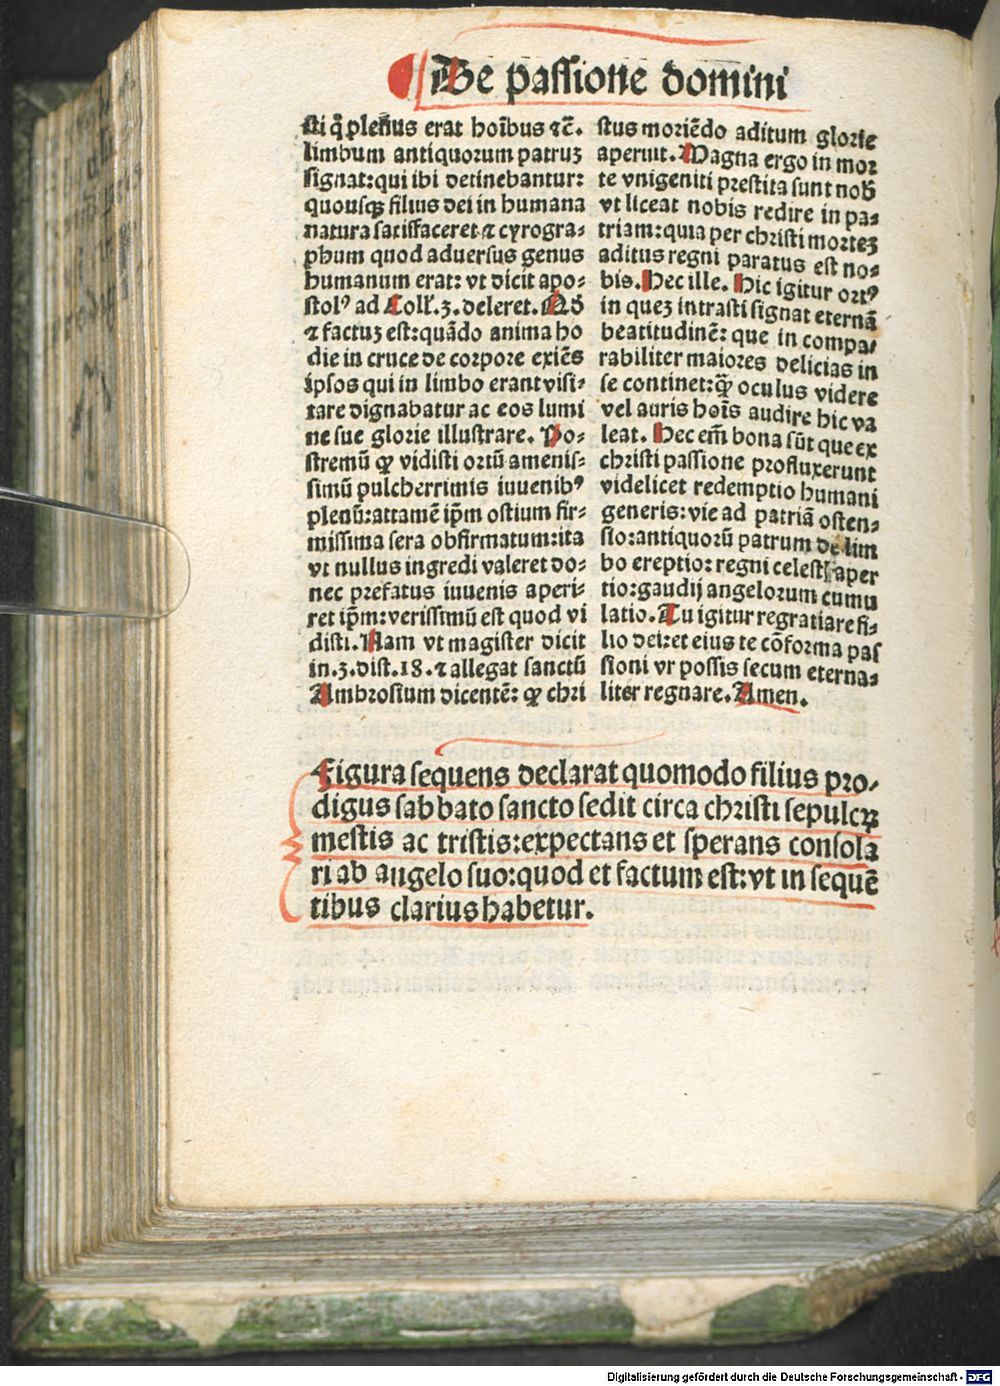 De passione domini
sti q̃ plenus erat hoībus ⁊c̄.
limbum antiquorum patruꝫ
signat:qui ibi detinebantur:
quousqꝫ filius dei in humana
natura satisfaceret ⁊ cyrogra⸗
phum quod aduersus genus
humanum erat: vt dicit apo⸗
stolꝰ ad Coll'.3.deleret. Qđ
⁊ factuꝫ est:quãdo anima ho
die in cruce de corpore exiēs
ipsos qui in limbo erant visi⸗
tare dignabatur ac eos lumi
ne sue glorie illustrare. Po⸗
stremū ꝙ vidisti ortū amenis⸗
simū pulcherrimis iuuenibꝰ
plenū:attamē ip̄m ostium fir⸗
missima sera obfirmatum:ita
vt nullus ingredi valeret do⸗
nec prefatus iuuenis aperi⸗
ret ip̄m:verissimū est quod vi
disti. Nam vt magister dicit
in.3.dist.18.⁊ allegat sanctū
Ambrosium dicentē: ꝙ chri
stus moriēdo aditum glorie
aperuit. Magna ergo in mor
te vnigeniti prestita sunt nob̄
vt liceat nobis redire in pa⸗
triam:quia per christi morteꝫ
aditus regni paratus est no⸗
bis. Hec ille. Hic igitur ortꝰ
in queꝫ intrasti signat eternā
beatitudinē: que in compa⸗
rabiliter maiores delicias in
se continet:q̃ꝫ oculus videre
vel auris hoīs audire hic va
leat. Hec em̄ bona sūt que ex
christi passione profluxerunt
videlicet redemptio humani
generis:vie ad patriā osten⸗
sio:antiquorū patrum de lim
bo ereptio: regni celestꝭ aper
tio:gaudij angelorum cumu
latio. Tu igitur regratiare fi⸗
lio dei:et eius te cōforma pas
sioni vt possis secum eterna⸗
liter regnare. Amen.
Figura sequens declarat quomodo filius pro⸗
digus sabbato sancto sedit circa christi sepulcrꝫ
mestis ac tristis:expectans et sperans consola
ri ab angelo suo:quod et factum est:vt in sequē
tibus clarius habetur.
Digitalisierung gefördert durch die Deutsche Forschungsgemeinschaft - DFG